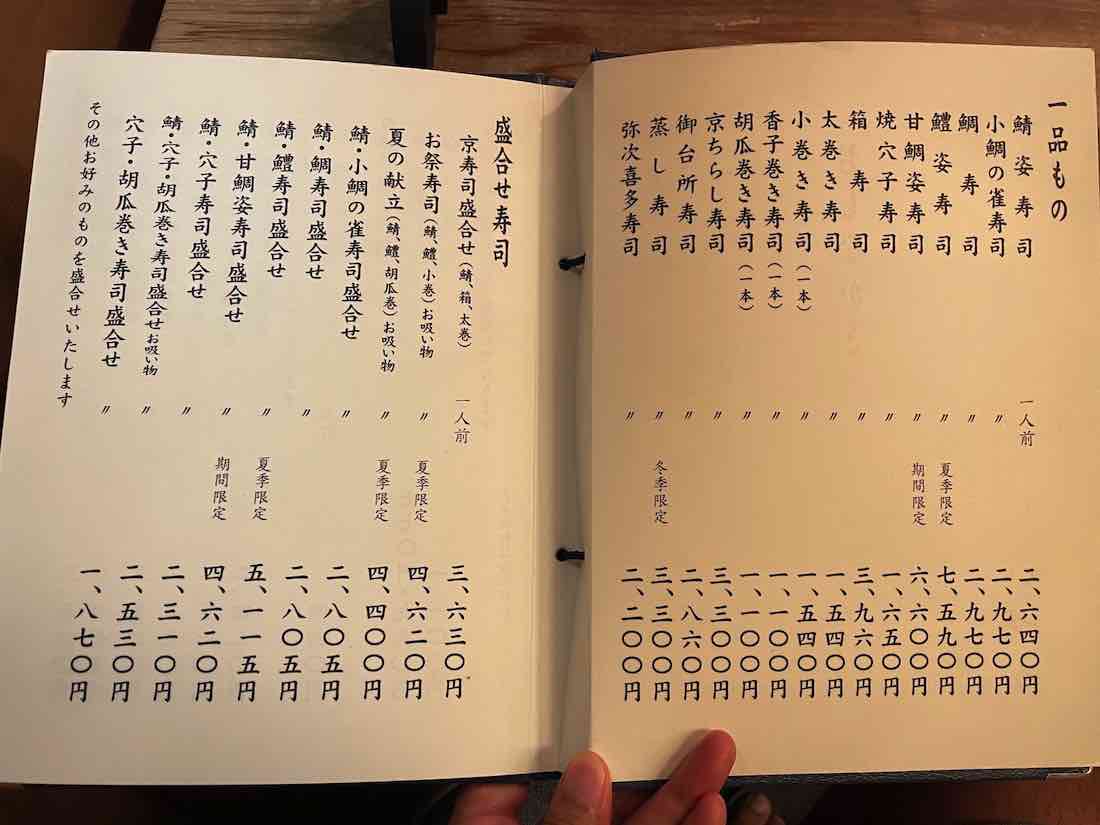 一品もの
鯖姿寿司 一人前 二、六四〇円
小鯛の雀寿司 〃 二、九七〇円
鯛寿司 〃 二、九七〇円
鱧姿寿司 〃 夏季限定 七、五九〇円
甘鯛姿寿司 〃 期間限定 六、六〇〇円
焼穴子寿司 〃 一、六五〇円
箱寿司 〃 三、九六〇円
太巻き寿司 〃 一、五四〇円
小巻き寿司(一本) 〃 一、五四〇円
香子巻き寿司(一本) 〃 一、一〇〇円
胡瓜巻き寿司(一本) 〃 一、一〇〇円
京ちらし寿司 〃 三、三〇〇円
御台所寿司 〃 二、八六〇円
蒸し寿司 〃 冬季限定 三、三〇〇円
弥次喜多寿司 〃 二、二〇〇円
盛合せ寿司
京寿司盛合せ(鯖、箱、太巻) 一人前 三、六三〇円
お祭寿司(鯖、鱧、小巻)お吸い物 〃 夏季限定 四、六二〇円
夏の献立(鯖、鱧、胡瓜巻)お吸い物 〃 夏季限定 四、四〇〇円
鯖・小鯛の雀寿司盛合せ 〃 二、八〇五円
鯖・鯛寿司盛合せ 〃 二、八〇五円
鯖・鱧寿司盛合せ 〃 夏季限定 五、一一五円
鯖・甘鯛姿寿司盛合せ 〃 期間限定 四、六二〇円
鯖・穴子寿司盛合せ 〃 二、三一〇円
鯖・穴子・胡瓜巻き寿司盛合せお吸い物 〃 二、五三〇円
穴子・胡瓜巻き寿司盛合せ 〃 一、八七〇円
その他お好みのものを盛合せいたします